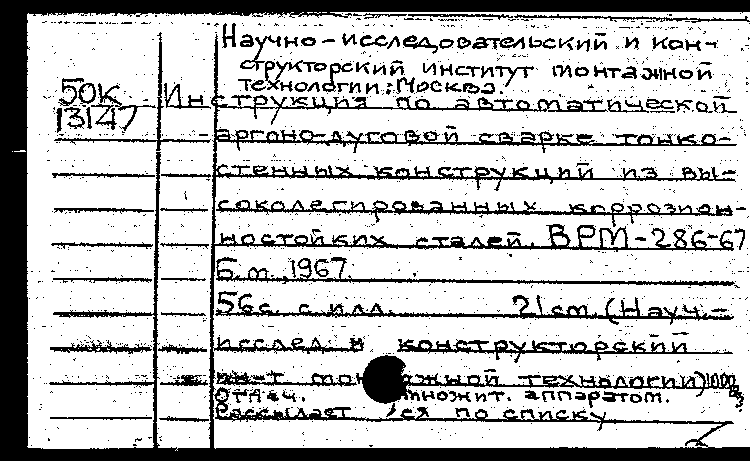 Научно-исследовательский и кон-
структорский институт монтажной
технологии; Москва.
50К
13147
Инструкция по автоматической
-аргоно-дуговой сварке тонко-
стенных конструкций из вы-
соколегированных коррозион-
ностойких сталей. ВРМ-286-67
Б.м., 1967.
56с. с илл. 21cm. (Науч.-
исслед. и конструкторский
ин-т монтажной технологии) 1000
Отпеч. множит. аппаратом.
Рассылается по списку